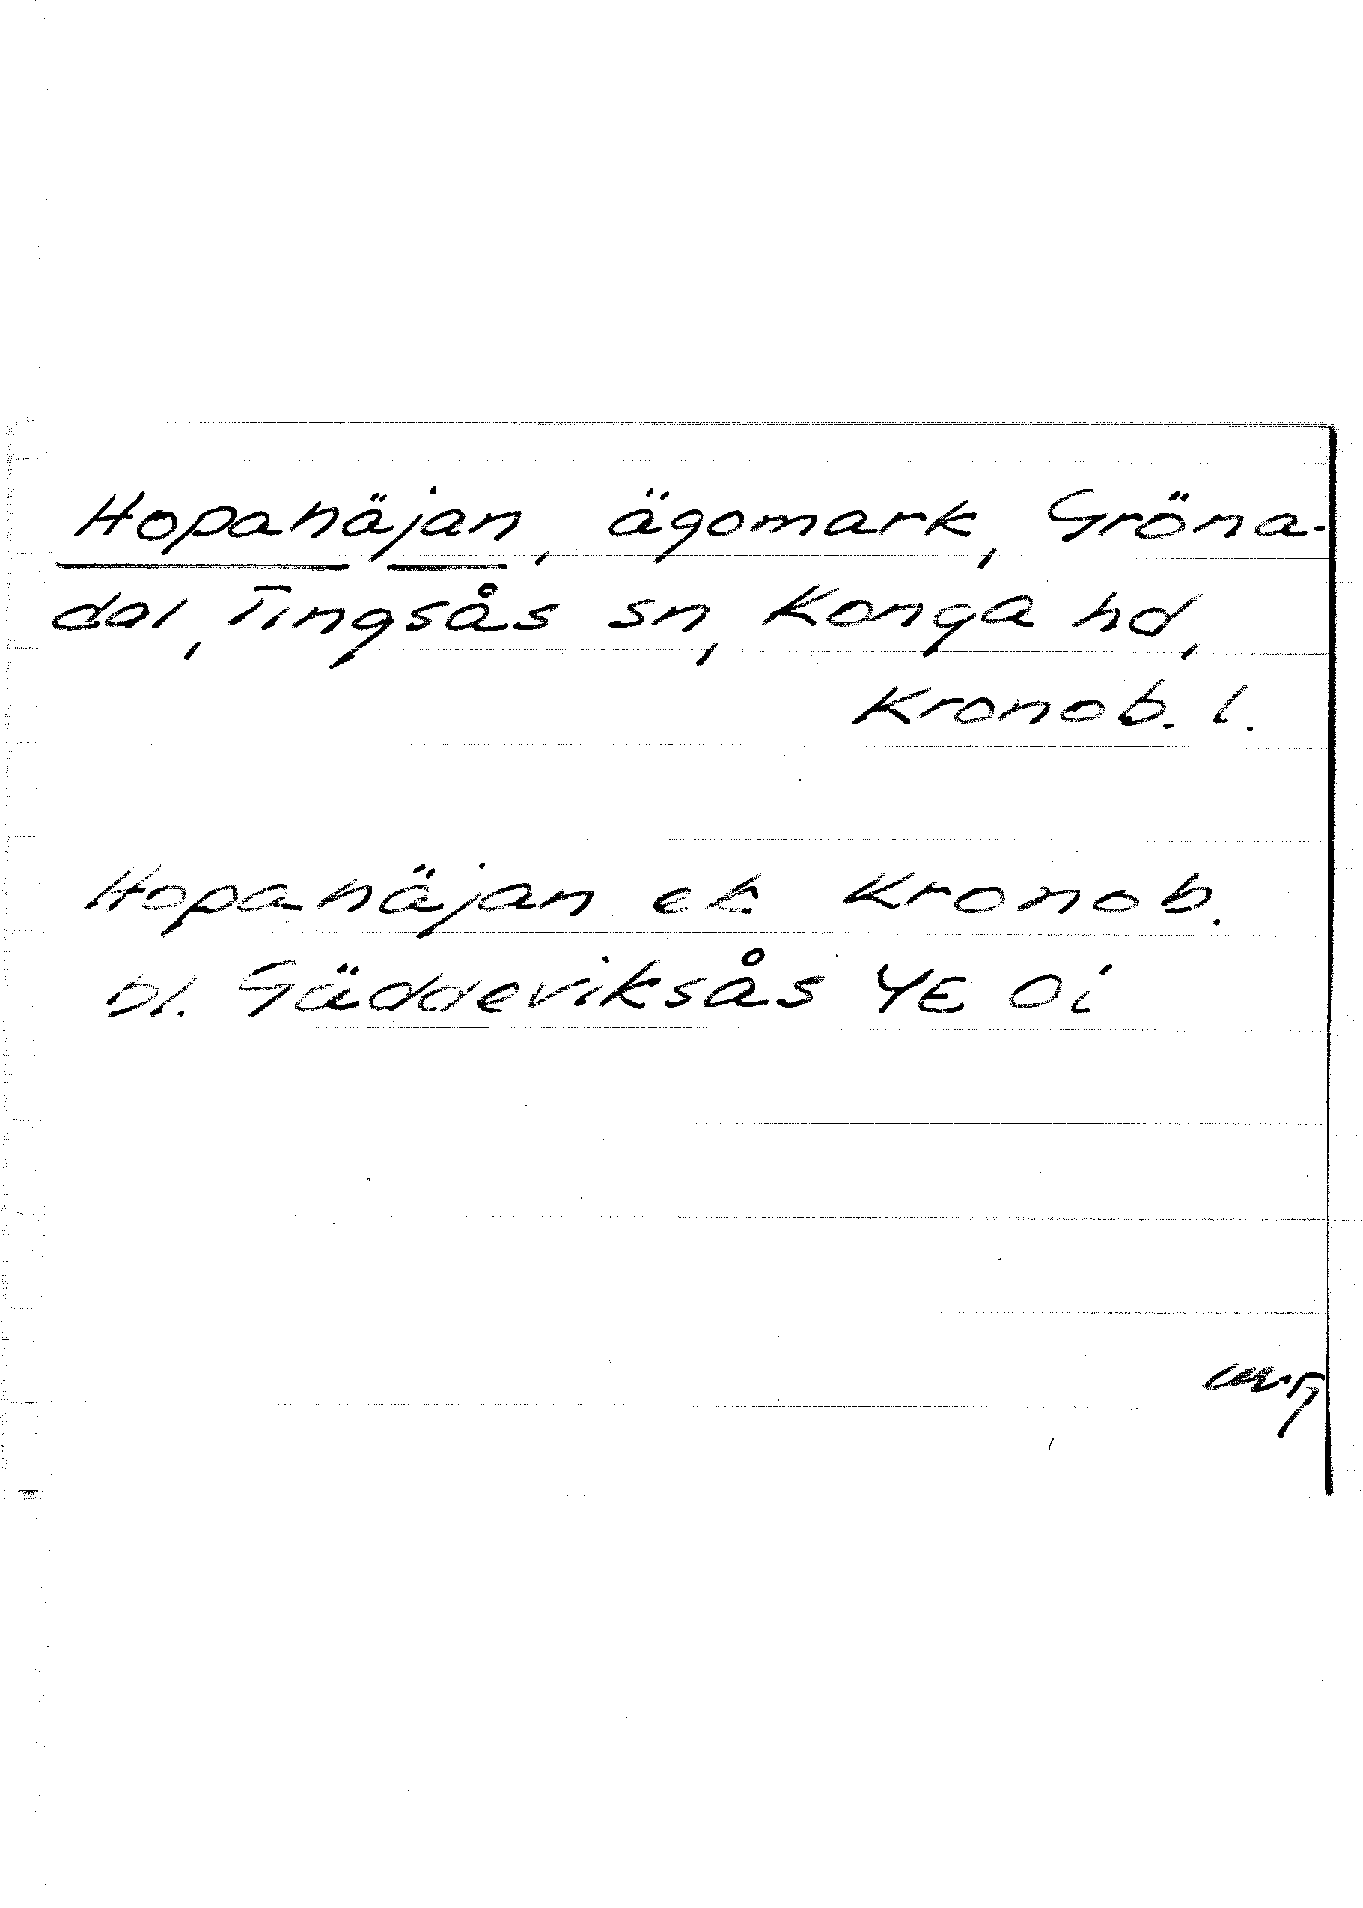 Hopahäjan, ägomark, Gröna-
dal, Tingsås sn, Konga hd,
Kronob. l.
Hopahäjan ek Kronob.
bl. Gäddeviksås 4E 0i